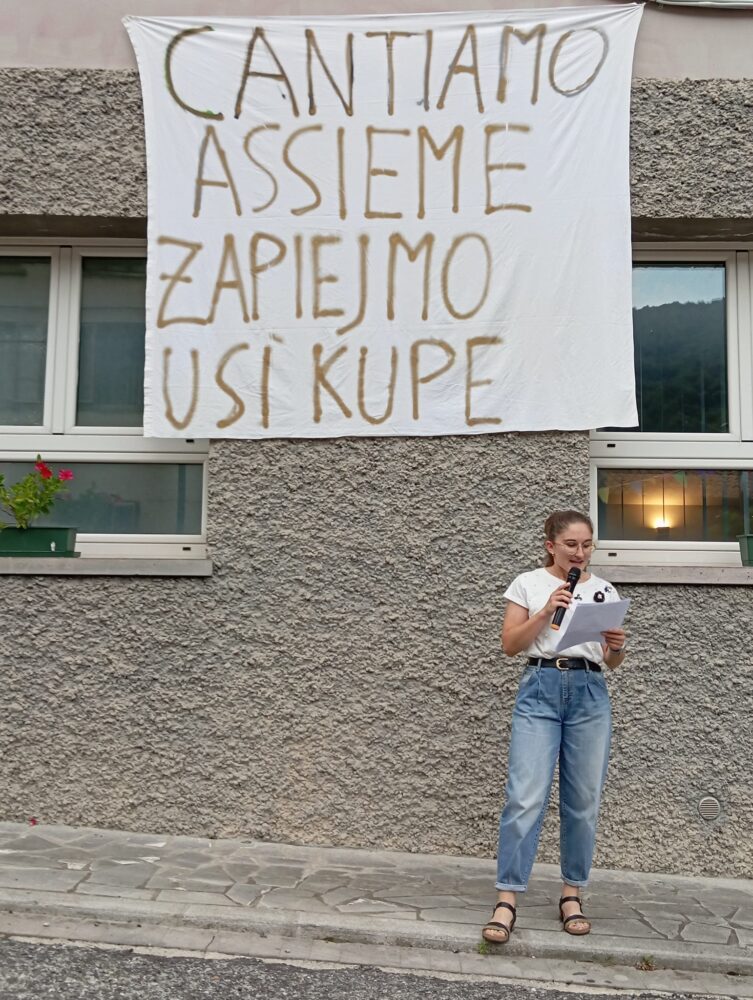 CANTIAMO
ASSIEME
ZAPIEJMO
USI KUPE